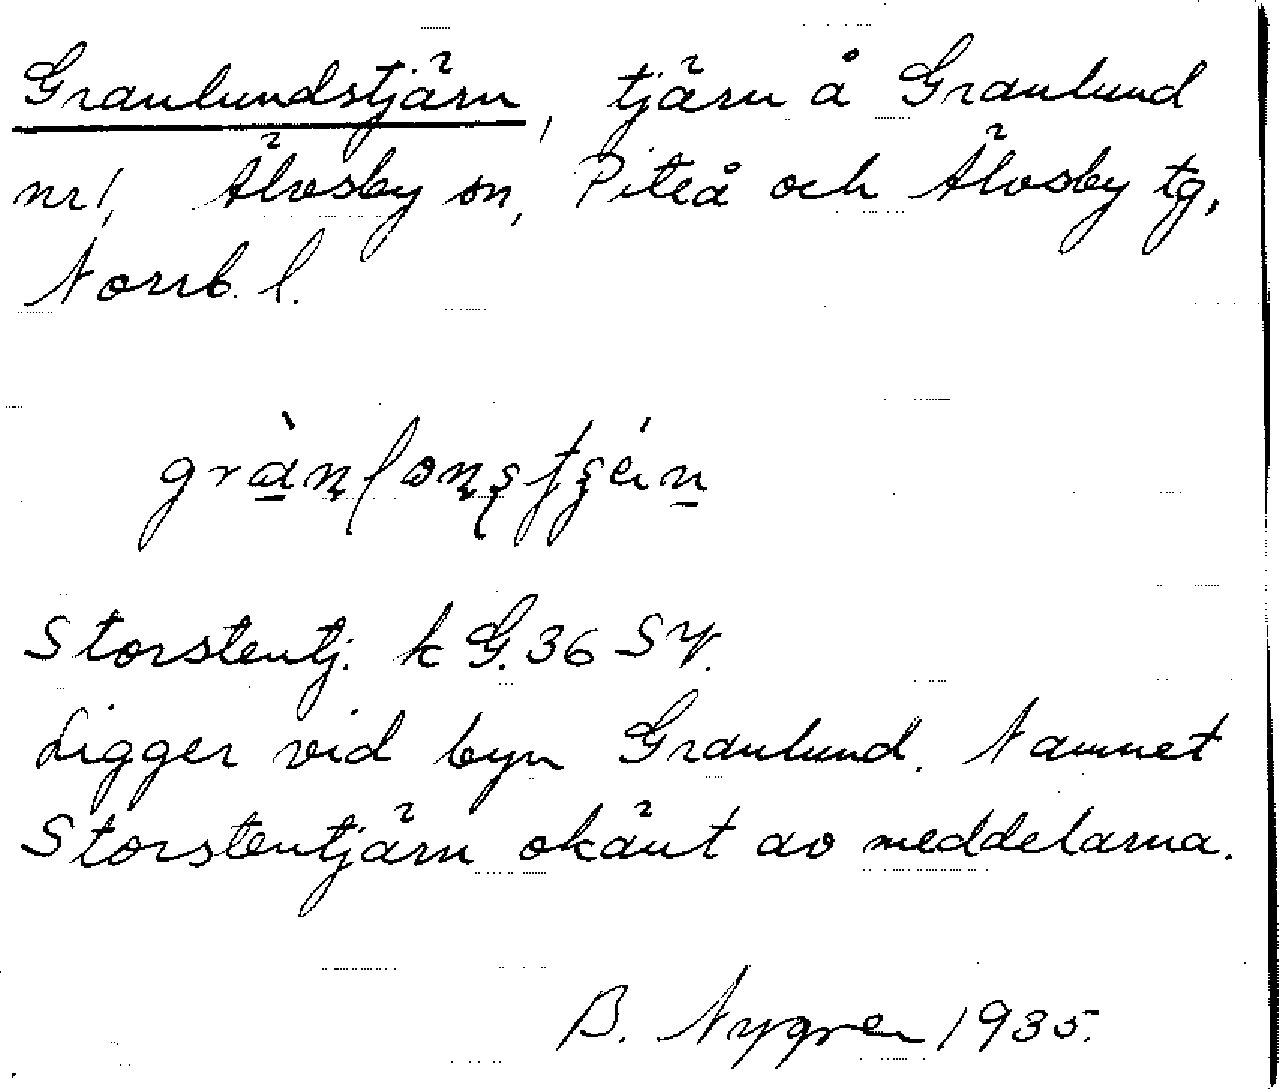 Granlundstjärn, tjärn å Granlund
nr 1, Älvsby sn, Piteå och Älvsby tg,
Norrb. l.
Storstentj. k G. 36 SV.
Ligger vid byn Granlund. Namnet
Storstentjärn okänt av meddelarna.
B. Nygren 1935.